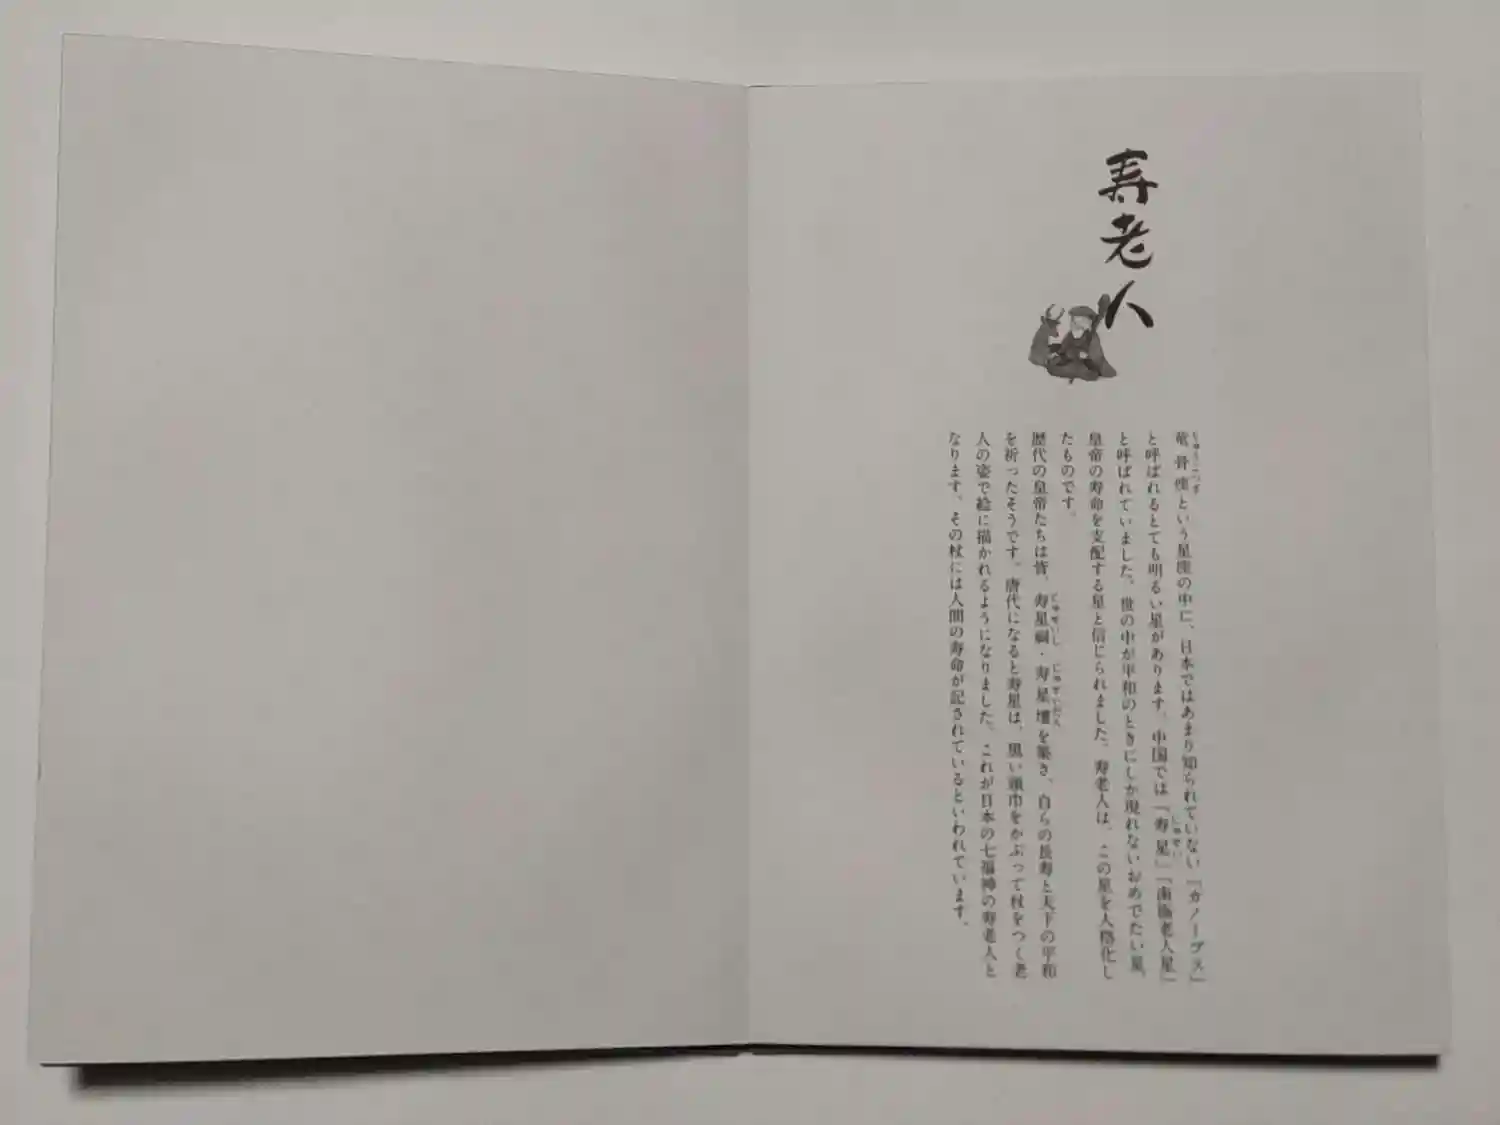 寿老人
竜骨座という星座の中に、日本ではあまり知られていない『カノープス』
と呼ばれるとても明るい星があります。中国では『寿星』『南極老人星』
と呼ばれていました。世の中が平和のときにしか現れないおめでたい星、
皇帝の寿命を支配する星と信じられました。寿老人は、この星を人格化し
たものです。
歴代の皇帝たちは皆、寿星祠・寿星壇を築き、自らの長寿と天下の平和
を祈ったそうです。唐代になると寿星は、黒い頭巾をかぶって杖をつく老
人の姿で絵に描かれるようになりました。これが日本の七福神の寿老人と
なります。その杖には人間の寿命が記されているといわれています。